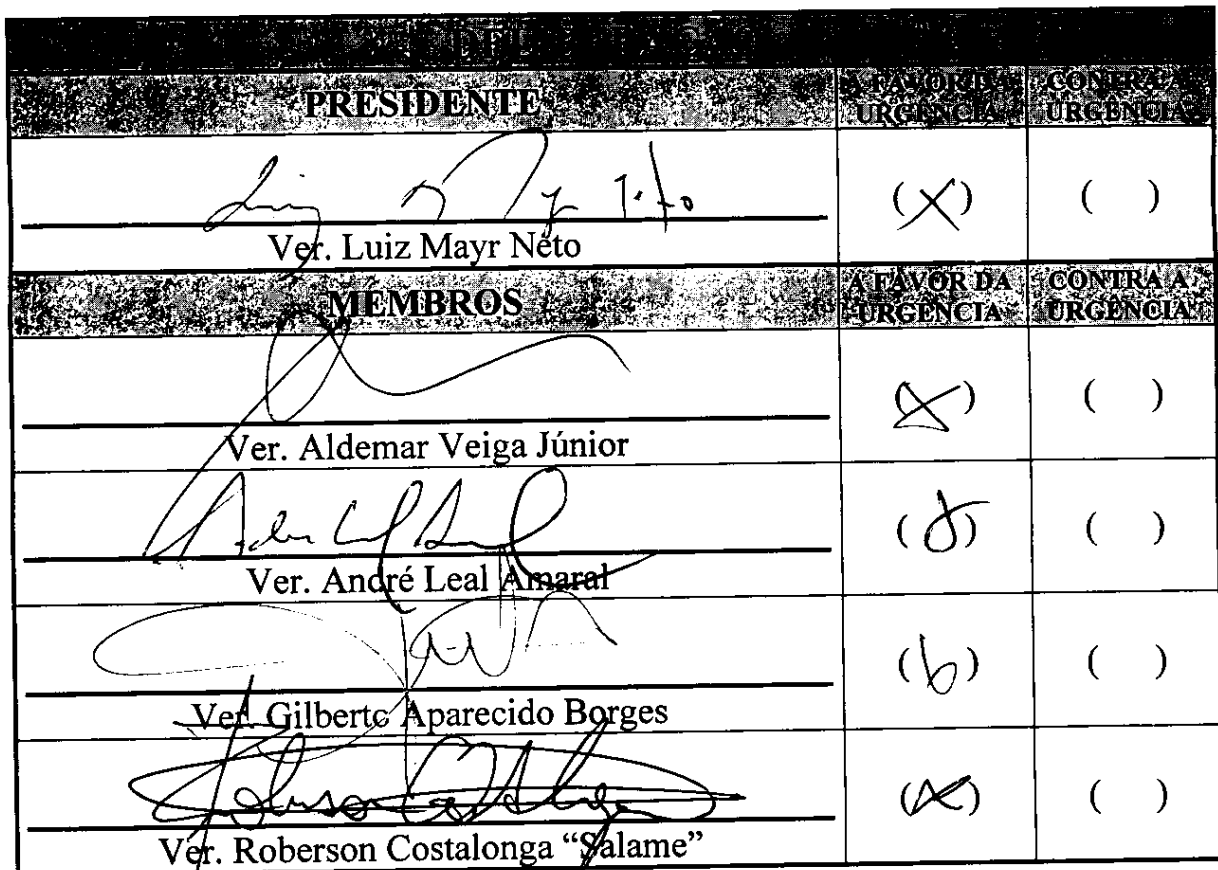 PRESIDENTE
A FAVOR DA URGÊNCIA
CONTRA A URGÊNCIA
(X) ( )
Ver. Luiz Mayr Neto
MEMBROS
A FAVOR DA URGÊNCIA
CONTRA A URGÊNCIA
(X) ( )
Ver. Aldemar Veiga Júnior
( ) ( )
Ver. André Leal Amaral
( ) ( )
Ver. Gilberto Aparecido Borges
(X) ( )
Ver. Roberson Costalonga “Salame”